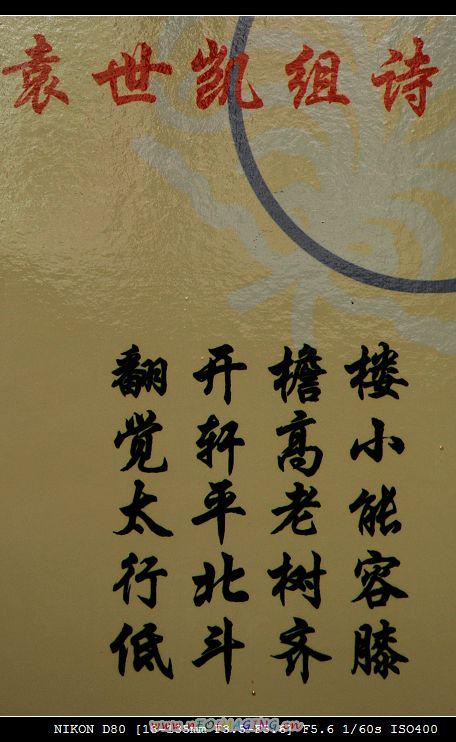 袁世凯组诗
楼小能容膝
檐高老树齐
开轩平北斗
翻觉太行低
NIKON D80 [18-135mm F3.5-F5.6] F5.6 1/60s ISO400